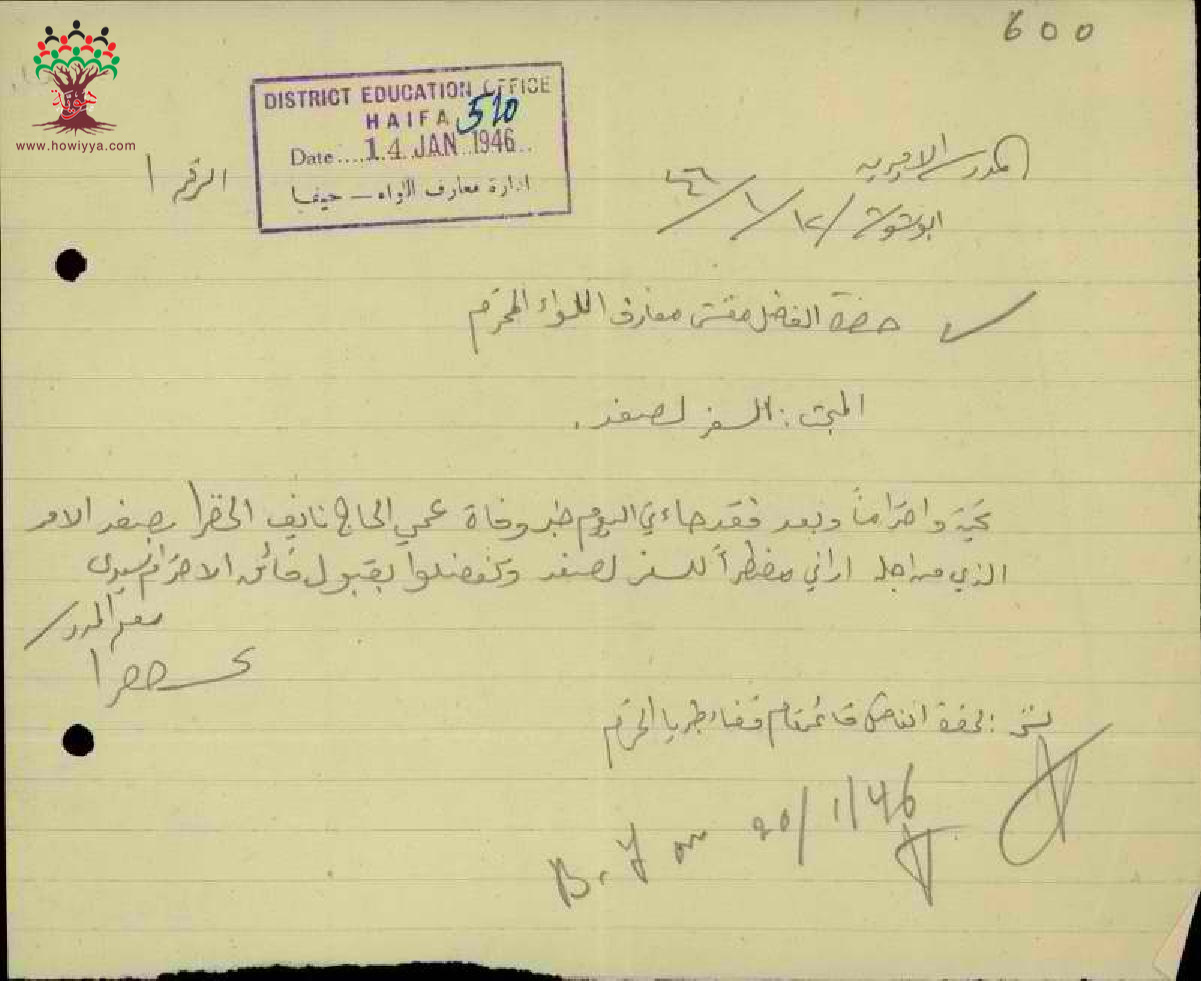 600
www.howiyya.com
DISTRICT EDUCATION OFFICE
HAIFA 520
Date....14 JAN 1946..
ادارة معارف اللواء — حيفا
الرقم ١
المدرسة الاميرية
ابو شوشة ١٢/١/٤٦
حضرة الفاضل مفتش معارف اللواء المحترم
المبحث: السفر لصفد.
تحية واحتراماً وبعد فقد جاءني اليوم خبر وفاة عمي الحاج نايف الخضرا بصفد الامر
الذي من اجله اراني مضطراً للسفر لصفد وتفضلوا بقبول فائق الاحترام سيدي
معلم المدرسة
خضرا
نسخة: لحضرة الفاضل قائمقام قضاء طبريا المحترم
B. F on 20/1/46